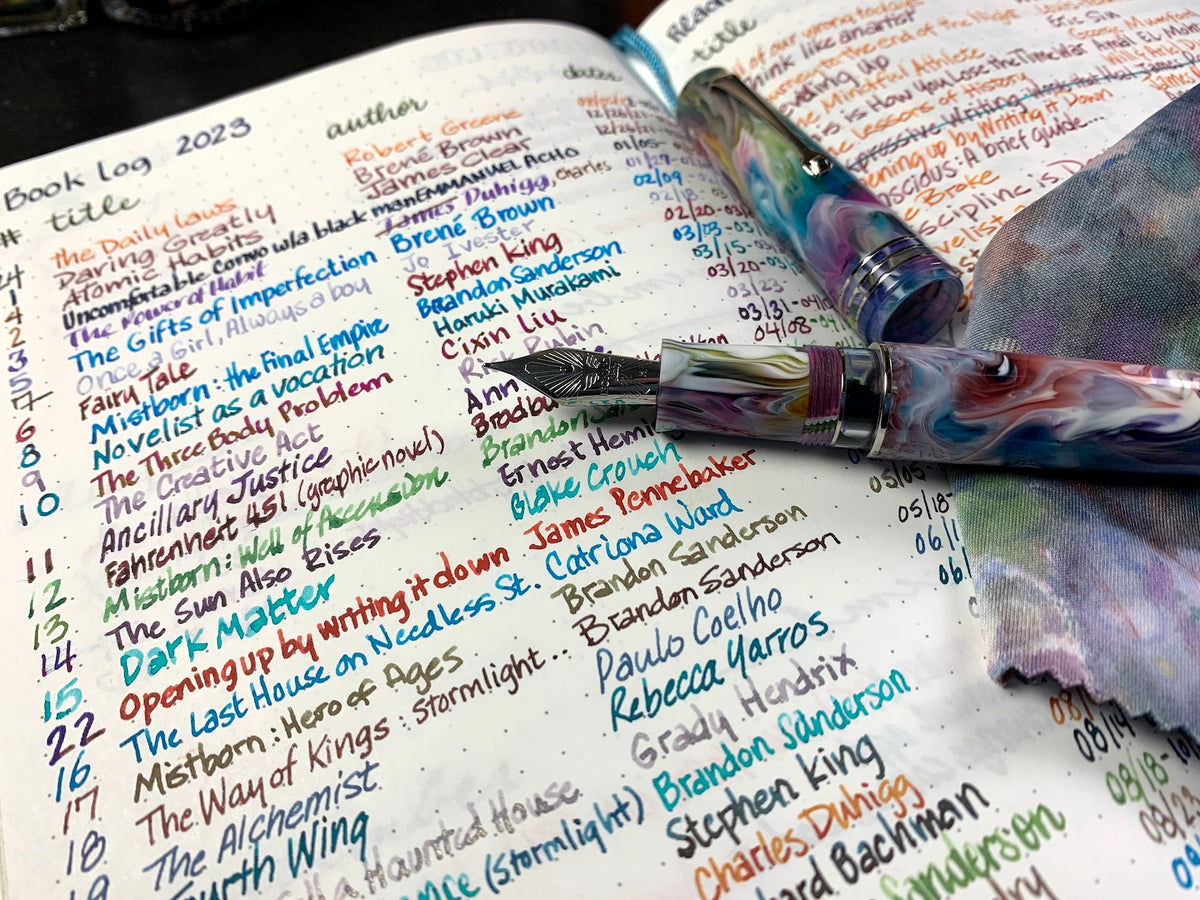 Book Log 2023
# title author dates
24 the Daily laws Robert Greene
1 Daring Greatly Brené Brown 12/26/21
4 Atomic Habits James Clear 12/26/21
2 Uncomfortable Convo w/a black man EMMANUEL ACHO 01/05-
3 The Power of Habit James Duhigg, Charles 01/27-
5 The Gifts of Imperfection Brené Brown 02/09
7 Once a Girl, Always a boy Jo Ivester 02/18
6 Fairy Tale Stephen King 02/20-03/
8 Mistborn: the Final Empire Brandon Sanderson 03/03-
9 Novelist as a vocation Haruki Murakami 03/15-
10 The Three Body Problem Cixin Liu 03/20-
The Creative Act Rick Rubin 03/23
11 Ancillary Justice Ann 03/31-04/
12 Fahrenheit 451 (graphic novel) Bradbu milton 04/08-
13 Mistborn: Well of Ascension Brandon San
14 The Sun Also Rises Ernest Hemi
15 Dark Matter Blake Crouch
22 Opening up by writing it down James Pennebaker 03/05-
16 The Last House on Needless St. Catriona Ward 05/18-
17 Mistborn: Hero of Ages Brandon Sanderson 06/1
18 The Way of Kings: Stormlight.. Brandon Sanderson 06/
19 The Alchemist Paulo Coelho
Fourth Wing Rebecca Yarros
ell a Haunted House Grady Hendrix
ance (Stormlight) Brandon Sanderson
Stephen King 08/
Charles Duhigg 08/14
hard Bachman 08/18-
Sanderson 08/2
dry
Readi
title
of our wrong todays
hink like an artist
wear to the end of the Night Louis-
ending up Eric Siu
e Mindful Athlete George Mumford
is is How You Lose the Time War Amal El-Moh
e Lessons of History Will & Ariel D
xpressive Writing Words that Heal James
ening up by Writing it Down James
oscious: A brief guide...
e Broke
scipline is De
ve list